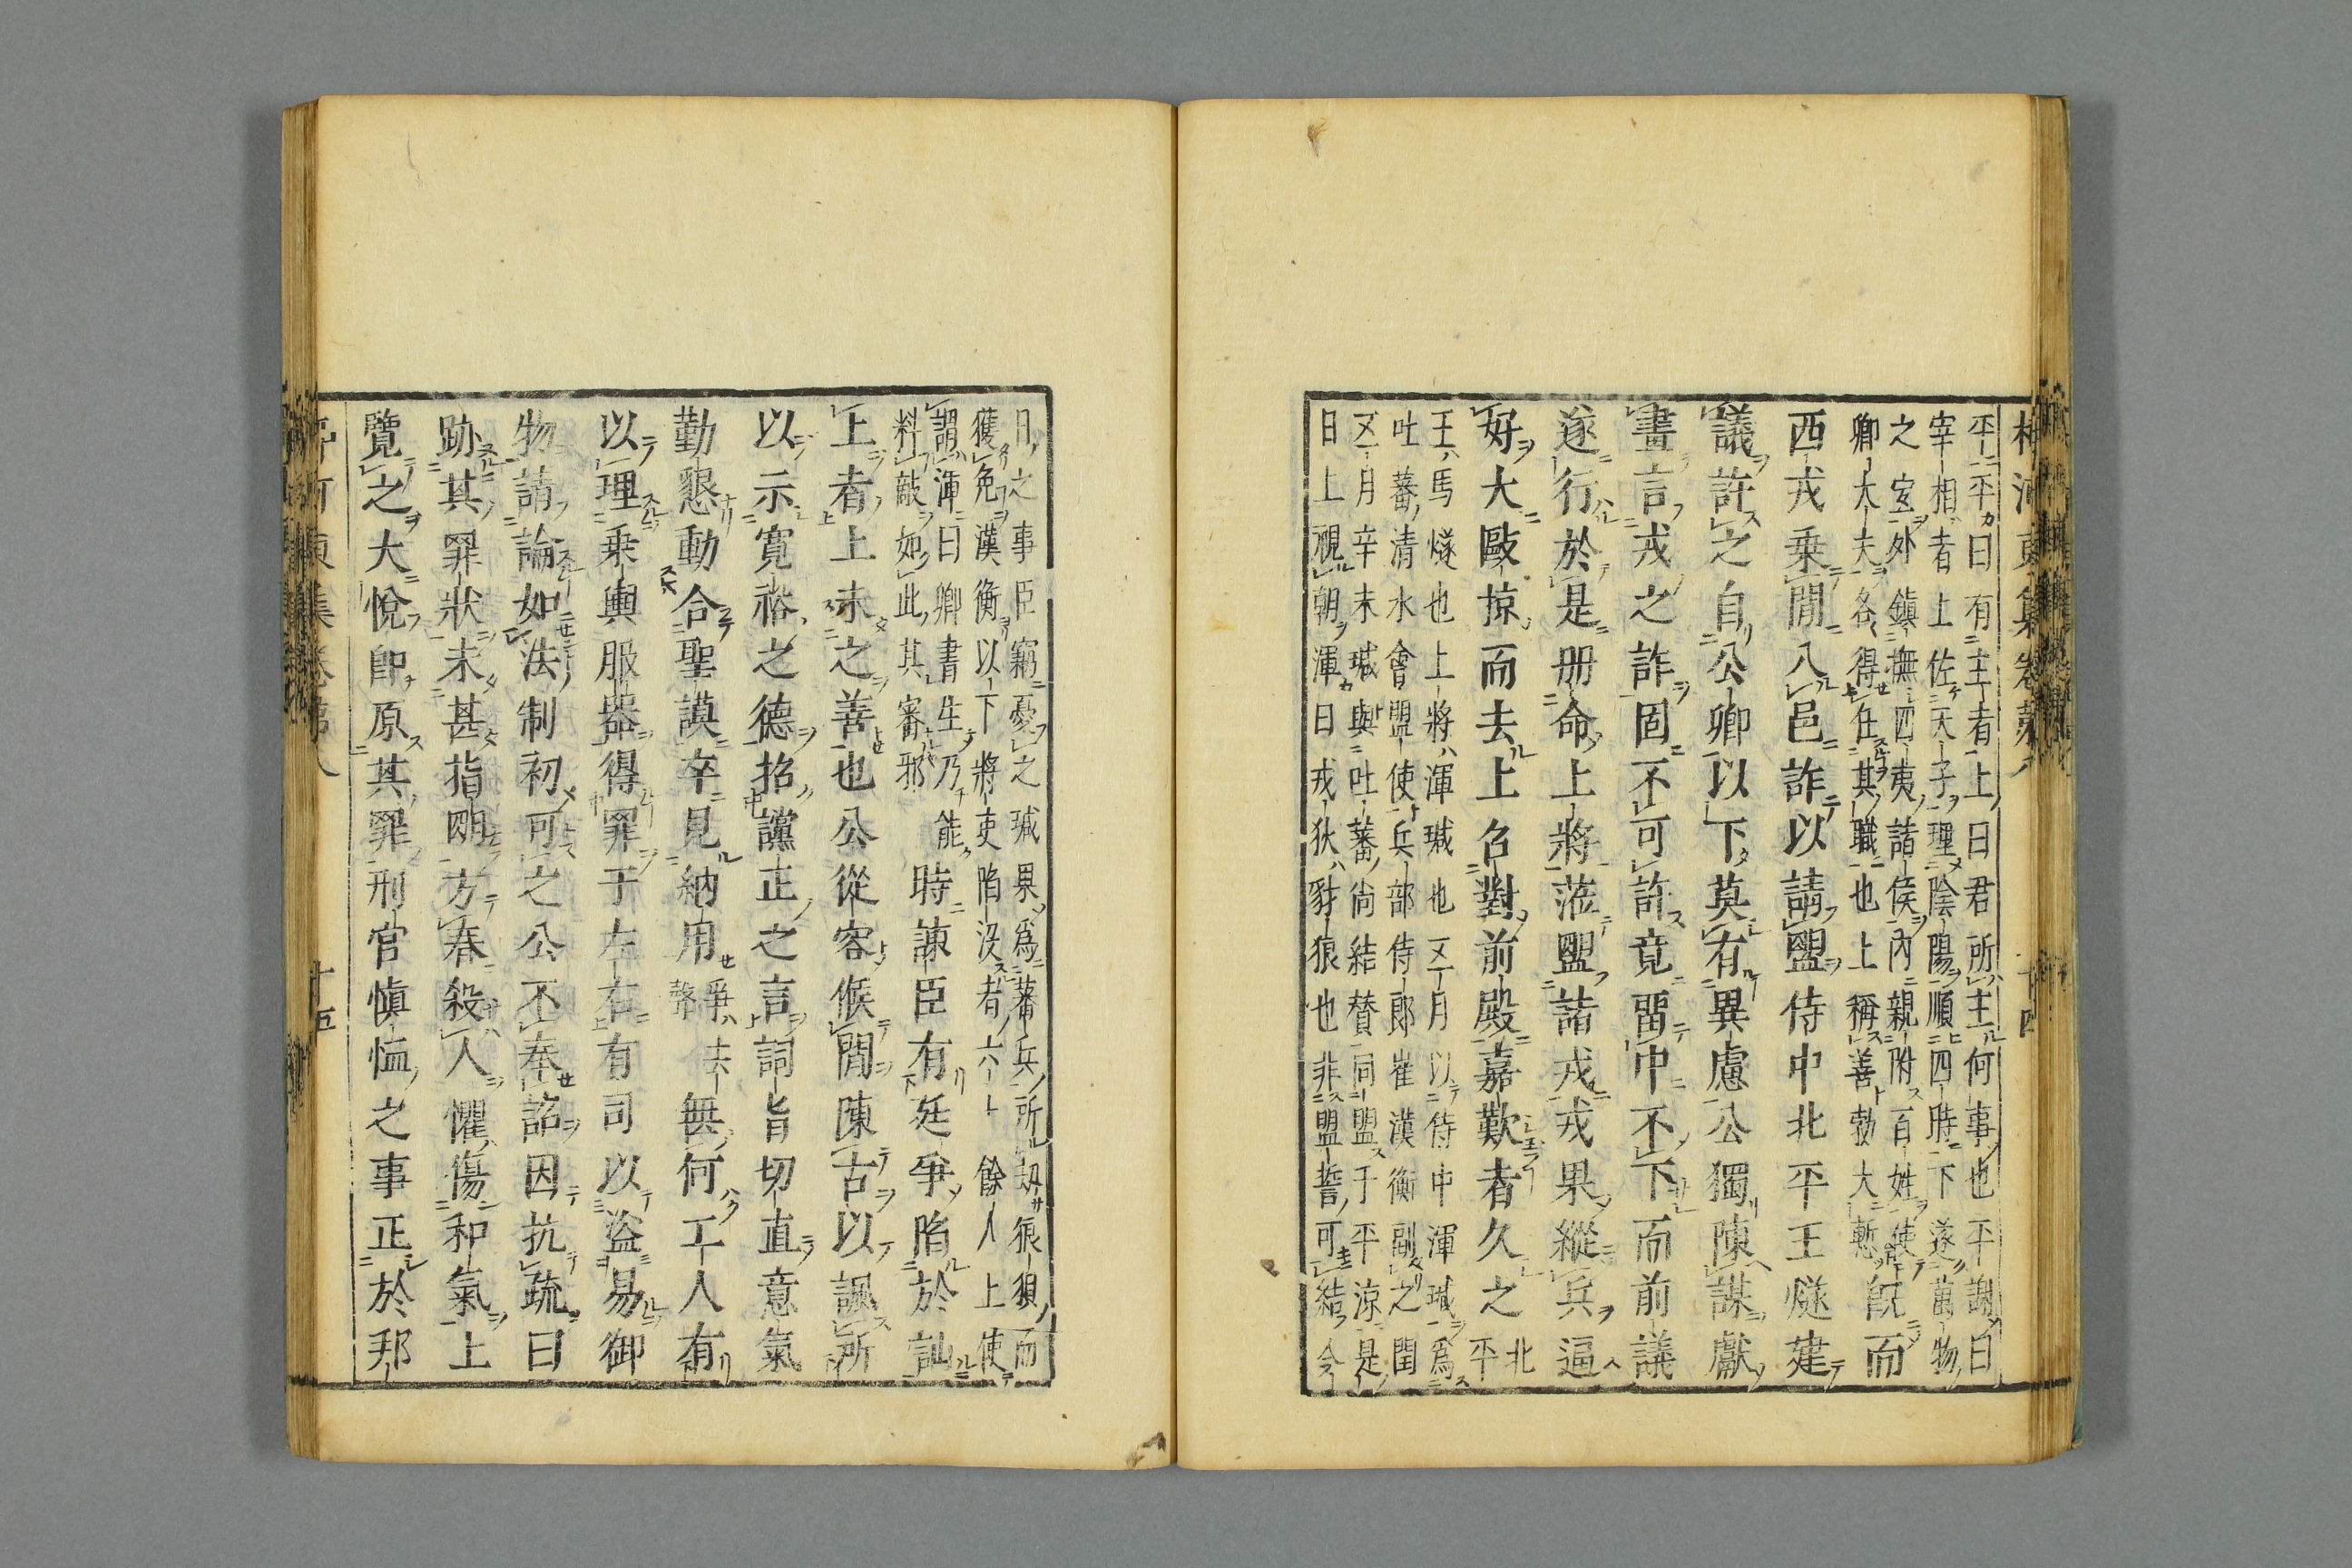 柳河東集卷第八 十四
平平曰有主者上曰君所主何事也平謝曰
宰相者上佐天子理陰陽順四時下遂萬物
之宜外鎮撫四夷諸侯內親附百姓使
卿大夫各得任其職也上稱善勃大慙 既而
西戎乗閒入邑詐以請盟侍中北平王燧建
議許之自公卿以下莫有異慮公獨陳謀獻
畫言戎之詐固不可許竟畱中不下而前議
遂行於是册命上將蒞盟諸戎戎果縱兵逼
好大毆掠而去上召對前殿嘉歎者久之 北平
王馬燧也上將渾瑊也五月以侍中渾瑊爲
吐蕃清水會盟使兵部侍郎崔漢衡副之閏
五月辛未瑊與吐蕃尙結賛同盟于平涼是
日上視朝渾曰戎狄豺狼也非盟誓可結今
日之事臣竊憂之瑊果爲蕃兵所刼狼狽而
獲免漢衡以下將吏陷没者六十餘人上使
謂渾曰卿書生乃能
料敵如此其審邪 時諫臣有廷爭陷於訕
上者上未之善也公從容候閒陳古以諷所
以示寬裕之德招讜正之言詞旨切直意氣
勤懇動合聖謨卒見納用 爭去聲 無何工人有
以理乗輿服器得罪于左右有司以盜易御
物請論如法制初可之公不奉詔因抗疏曰
跡其罪狀未甚指明方春殺人懼傷和氣上
覽之大悅卽原其罪刑官愼恤之事正於邦
河東集卷第八 十五